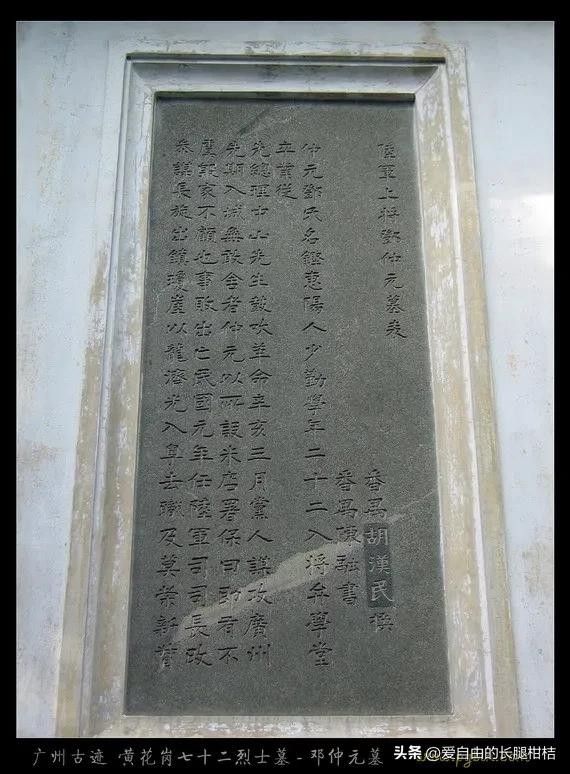 陸軍上將鄧仲元墓表
番禺胡漢民撰
番禺陳融書
仲元鄧氏名鏗惠陽人少勤學年二十二入將弁學堂
卒業從
先總理中山先生鼓吹革命辛亥三月黨人謀攻廣州
先期入城無敢舍者仲元以所設米店署保曰即有不
虞毀家不顧也事敗出亡民國元年任陸軍司司長改
參謀長旋出鎮瓊崖以龍濟光入粵去職及莫榮新督
广州古迹 黄花岗七十二烈士墓 - 邓仲元墓
头条 @爱自由的长腿柑桔